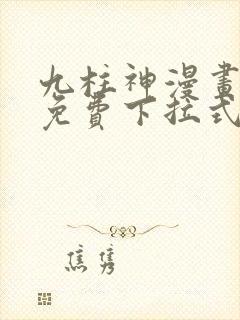 九柱神漫畫
免費下拉式
焦隽